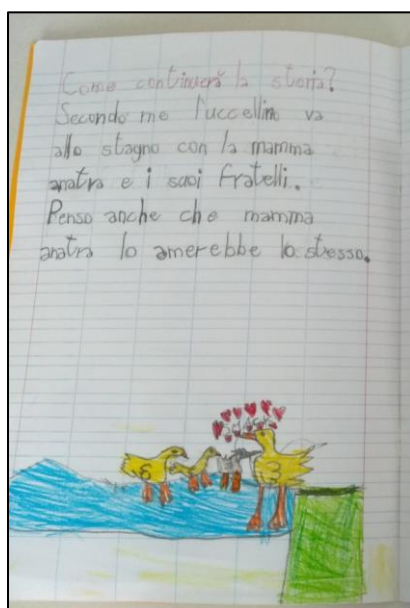 Come continuerà la storia?
Secondo me l'uccellino va
allo stagno con la mamma
anatra e i suoi fratelli.
Penso anche che mamma
anatra lo amerebbe lo stesso.